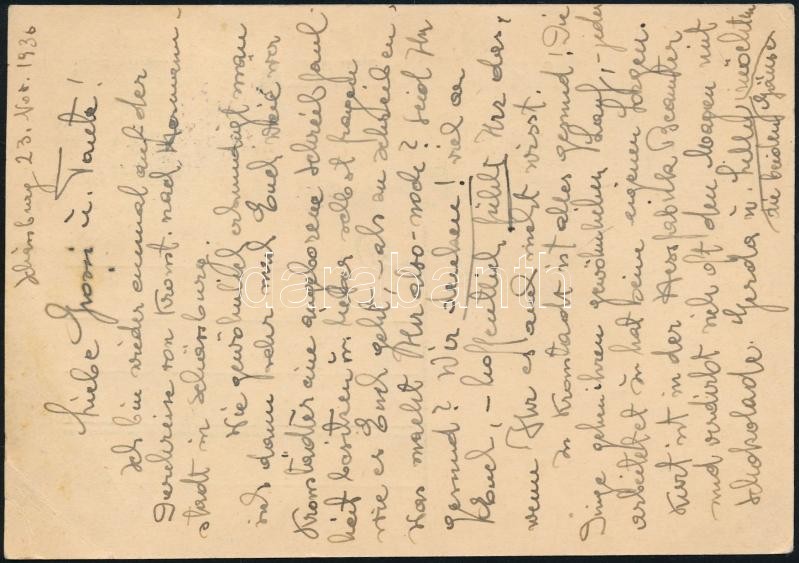 Schässburg 23. Nov. 1936
Liebe Gromi u. Tante!
Ich bin wieder einmal auf der
Durchreise von Kronst. nach Hermann-
stadt in Schässburg.
Wie gewöhnlich erkundigt man
sich dann sehr nach Euch. Weil wir
Kronstädter eine angeborene Schreibfaul-
heit besitzen u. lieber selbst fragen
wie es Euch geht, - als zu schreiben.
Was macht Ihr also - noch? Seid Ihr
gesund? Wir denken! viel an
Euch, - hoffentlich fühlt Ihr das,
wenn Ihr es auch nicht wisst.
In Kronstadt ist alles gesund! Die
Dinge gehn ihren gewöhnlichen Lauf, - jeder
arbeitet u. hat seine eigenen Sorgen.
Kurt ist in der Hessfabrika Beamter
und verdirbt sich oft den Magen mit
Schokolade. Gerda u. Lilly möchten
die beiden Gänse
darabanth